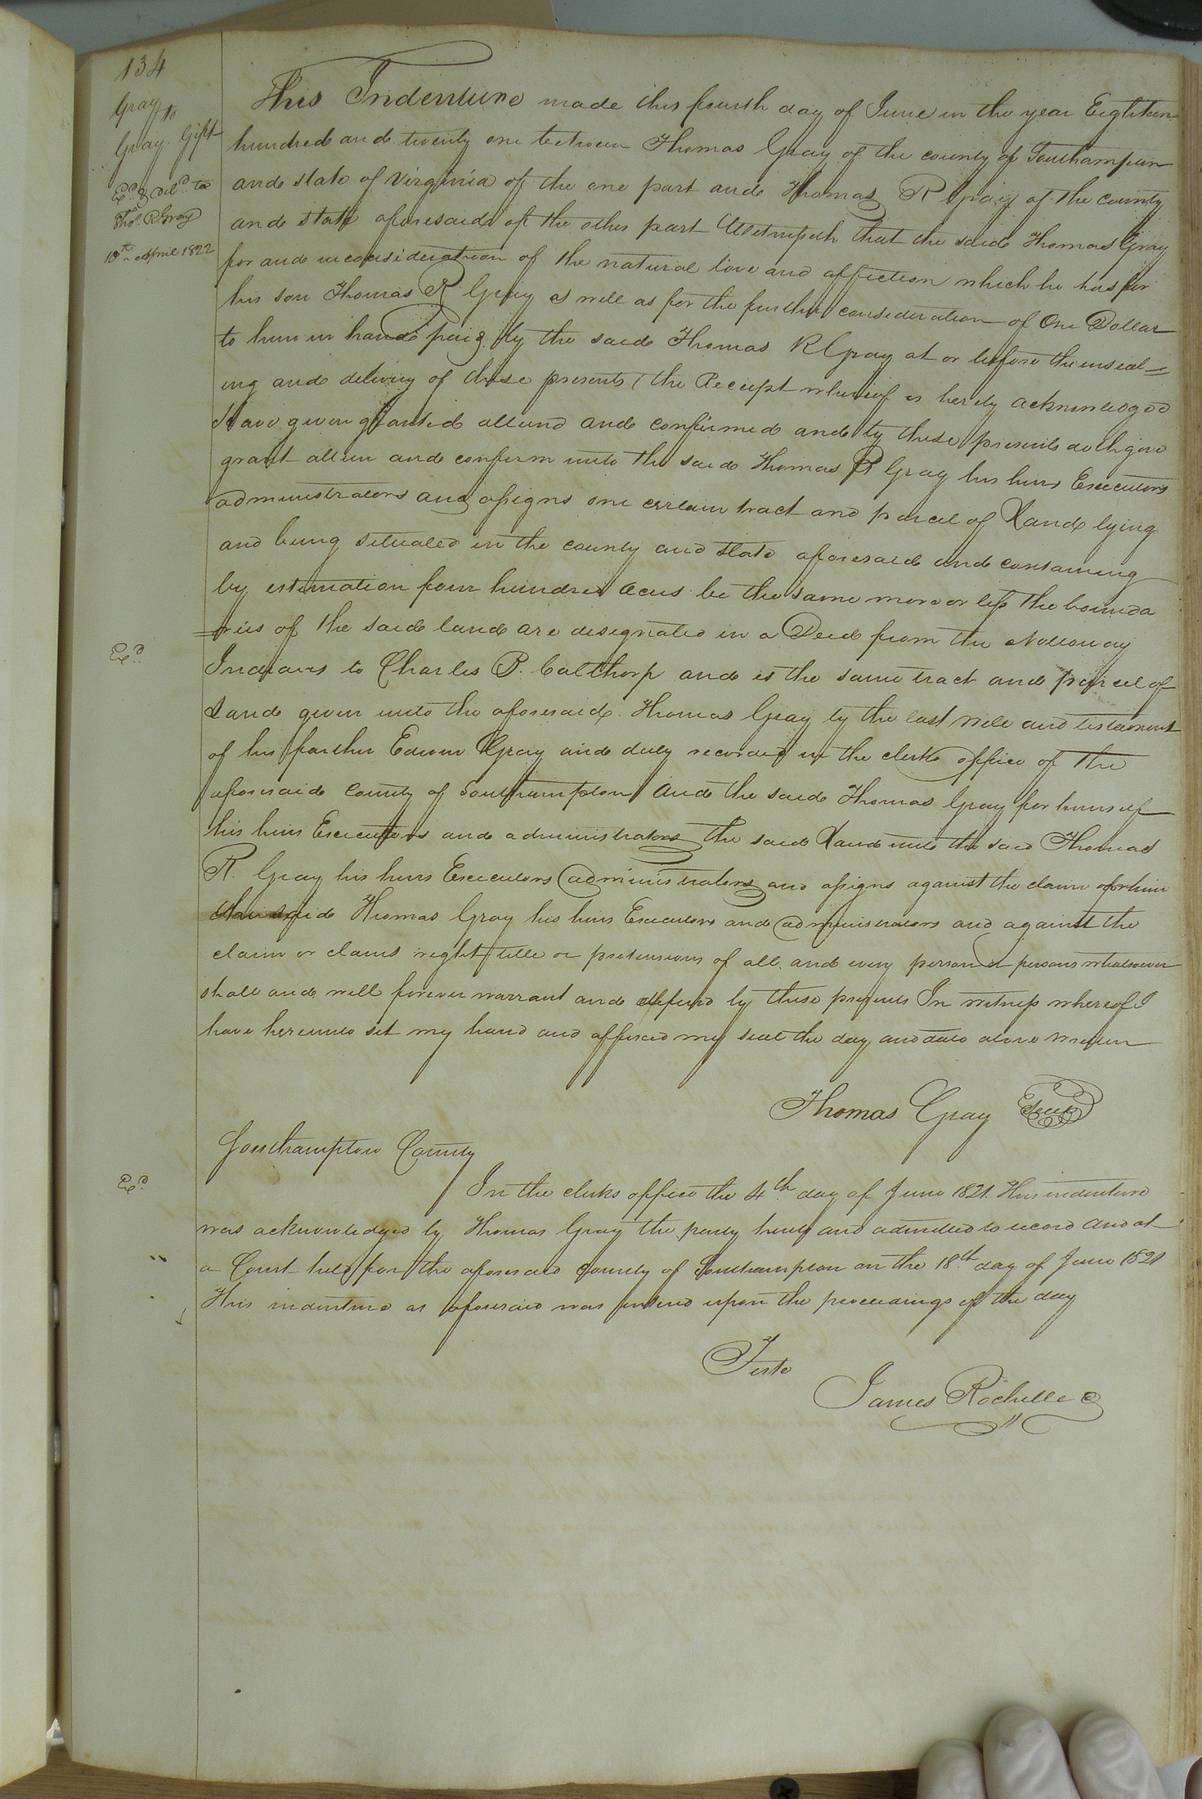 134
Gray to
Gray. Gift
Exd. & Deld. to
Thos. R. Gray
10th April 1822
This Indenture made this fourth day of June in the year Eighteen
hundred and twenty one between Thomas Gray of the county of Southampton
and state of Virginia of the one part and Thomas R Gray of the county
and state aforesaid of the other part Witnesseth that the said Thomas Gray
for and in consideration of the natural love and affection which he has for
his son Thomas R Gray as well as for the further consideration of One Dollar
to him in hand paid by the said Thomas R Gray at or before the enseal=
ing and delivery of these presents (the Receipt whereof is hereby acknowledged
Have given granted aliend and confirmed and by these presents doth give
grant alien and confirm unto the said Thomas R Gray his heirs Executors
administrators and assigns one certain tract and parcel of Land lying
and being situated in the county and state aforesaid and containing
by estimation four hundred acres be the same more or less the bounda
=ries of the said land are designated in a Deed from the Nottoway
Exd.
Indians to Charles B. Calthorp and is the same tract and parcel of
Land given unto the aforesaid Thomas Gray by the last will and testament
of his farther Edwin Gray and duly recorded in the clerks office of the
aforesaid County of Southampton And the said Thomas Gray for himself
his heirs Executors and administrators the said Land unto the said Thomas
R. Gray his heirs Executors administrators and assigns against the claim of him
the said Thomas Gray his heirs Executors and administrators and against the
claim or claims right title or pretensions of all and every person or persons whatsoever
shall and will forever warrant and defend by these presents In witness whereof I
have hereunto set my hand and affixed my seal the day and date above written
Thomas Gray Seal
Southampton County
Exd.
In the clerks office the 4th day of June 1821. This indenture
was acknowledged by Thomas Gray the party hereto and admitted to record And at
a Court held for the aforesaid County of Southampton on the 18th day of June 1821
This indenture as aforesaid was entered upon the proceedings of the day
Teste
James Rochelle C